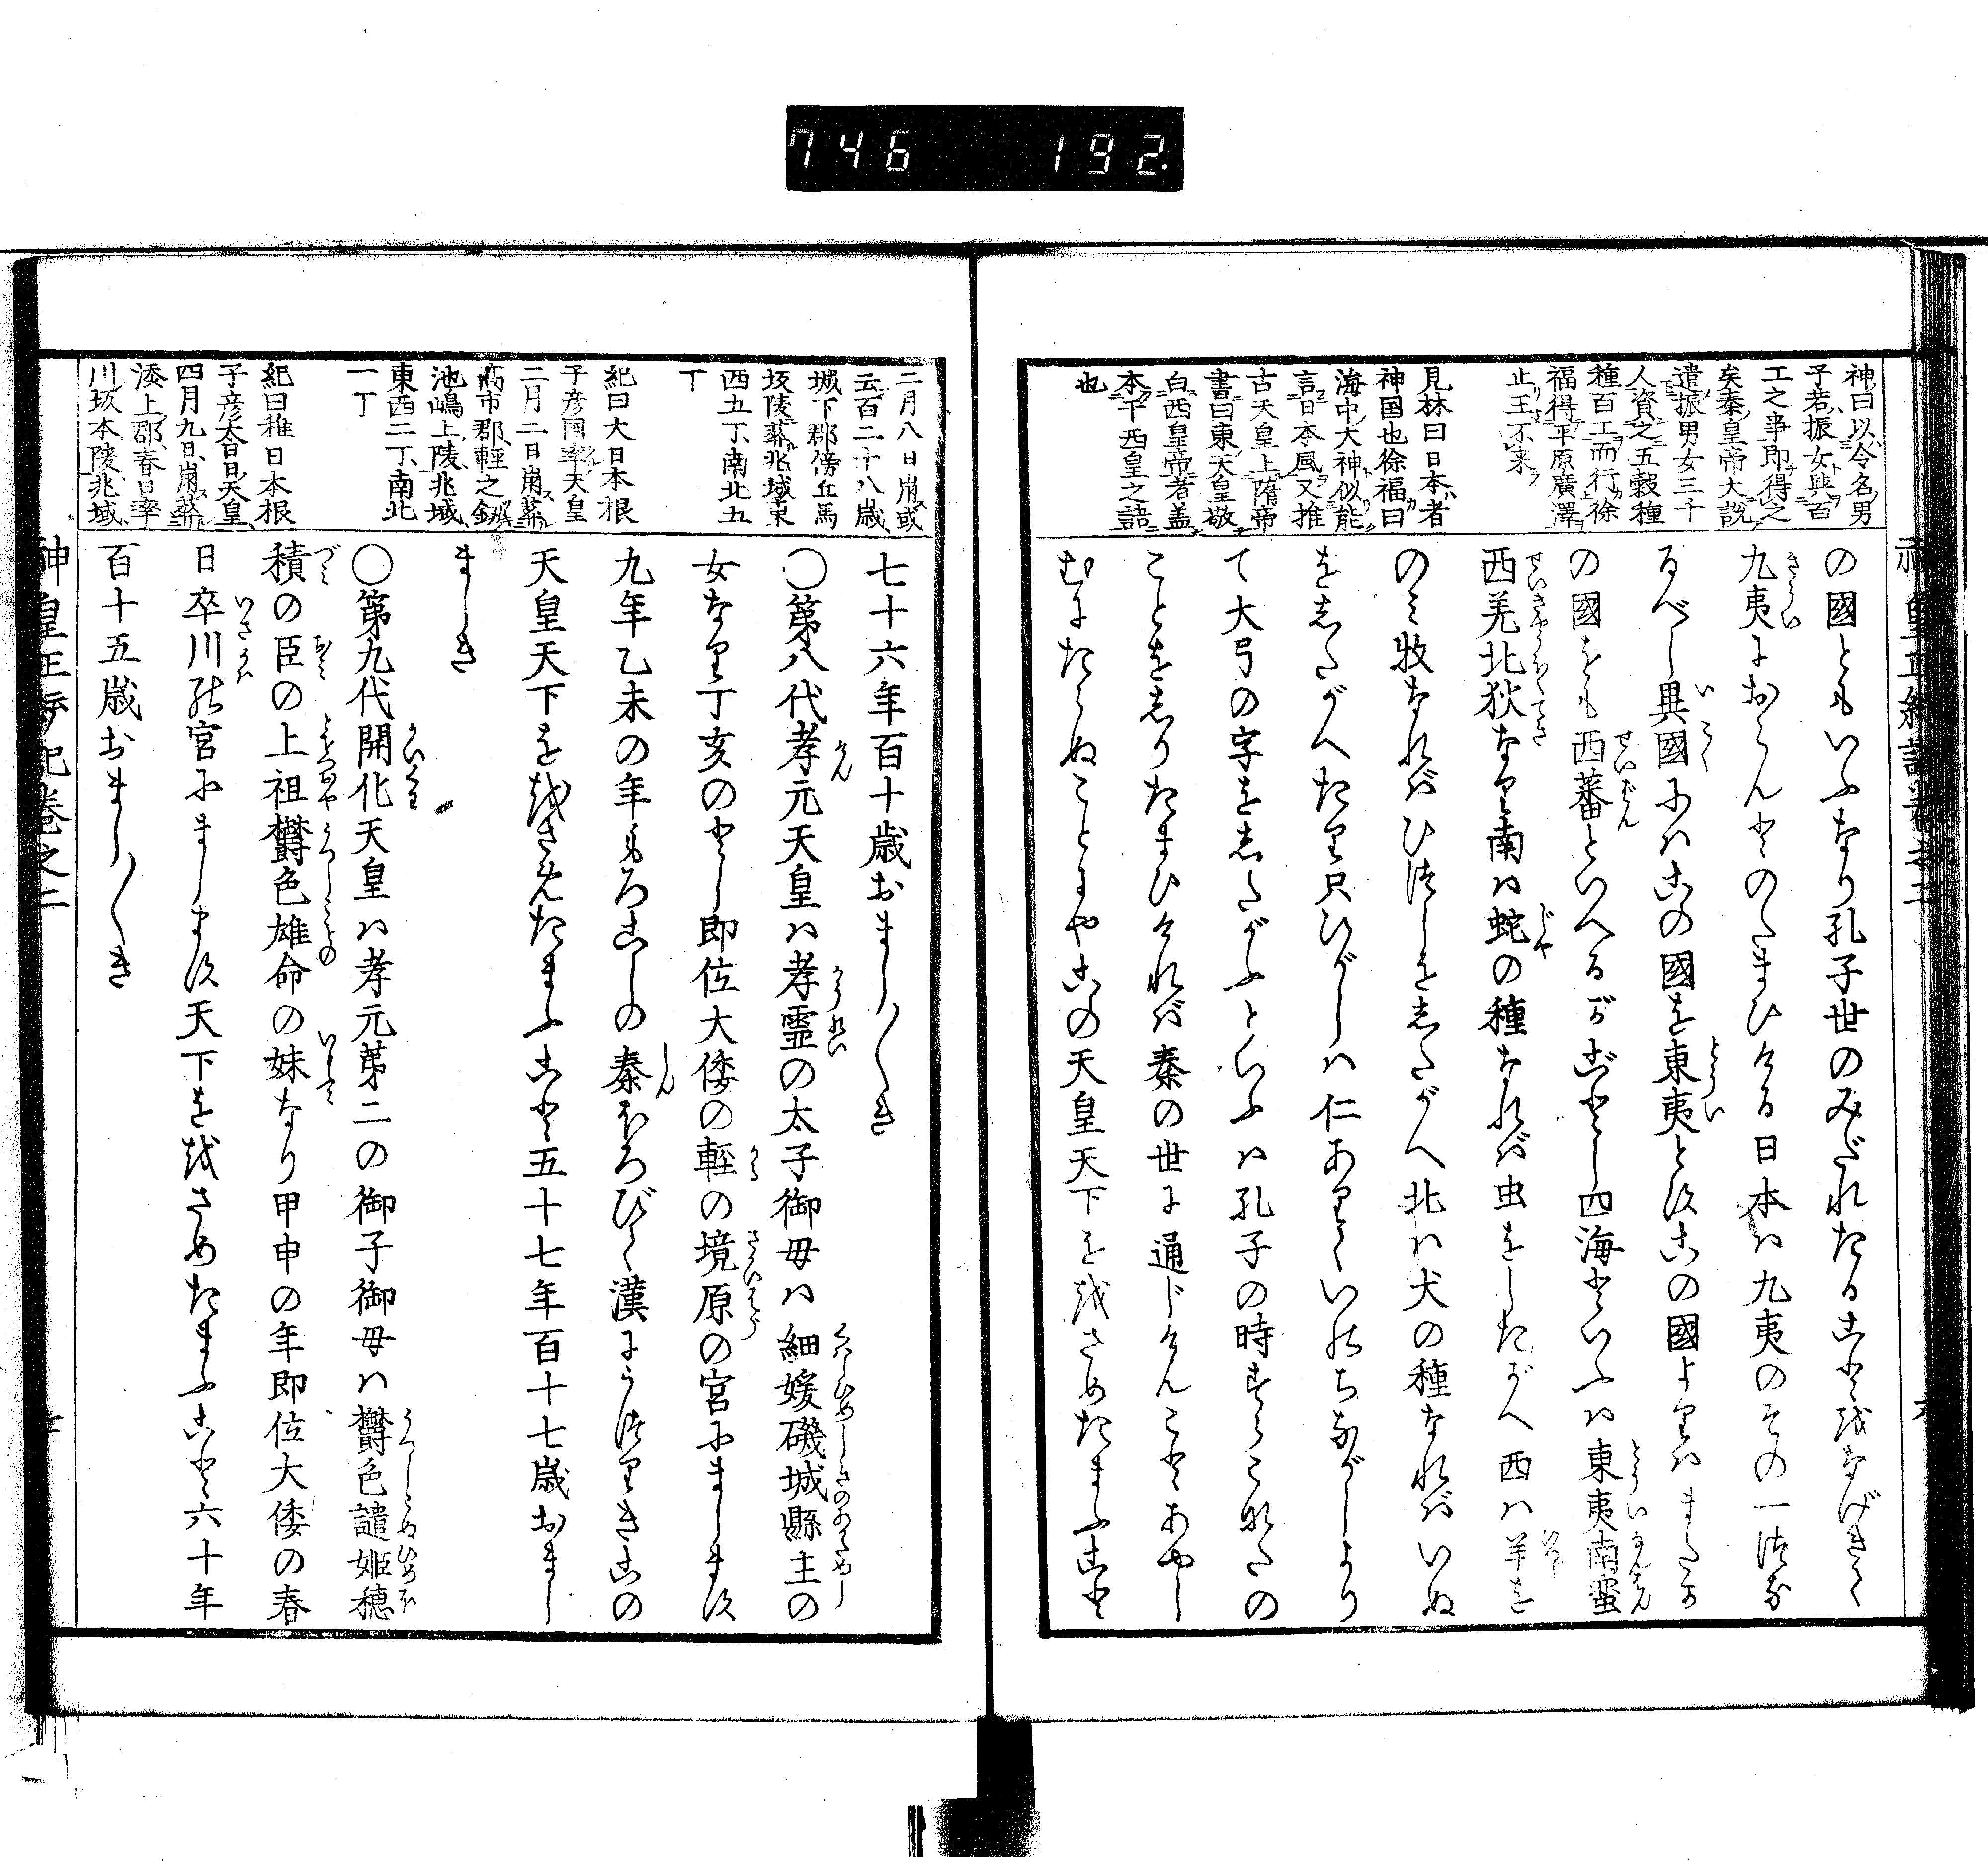 746 192.
神皇正統記巻之二
神曰以令名男
子若振女與百
工之事即得之
矣秦皇帝大說
遣振男女三千
人資之五穀種
種百工而行徐
福得平原廣澤
止王不来
見林曰日本者
神国也徐福曰
海中大神似能
言日本風又推
古天皇上隋帝
書曰東天皇敬
白西皇帝者盖
本于西皇之語
也
の國ともいふなり孔子世のみだれたることをなげきて
九夷におらんとのたまひける日本は九夷のその一つな
るべし異國にはこの國を東夷とすこの國よりはまたか
の國をも西蕃といへるがごとし四海といふは東夷南蛮
西羌北狄なり南は蛇の種なれば虫をしたがへ西は羊を
のミ牧なればひつじをしたがへ北は犬の種なればいぬ
をしたがへたり只ひがしは仁ありていのちながしより
て大弓の字をしたがふといふは孔子の時すらこなたの
ことをしりたまひければ秦の世に通じけんことあやし
むにたらぬことにやこの天皇天下ををさめたまふこと
二月八日崩或
云百二十八歳
城下郡傍丘馬
坂陵葬兆域東
西五丁南北五
丁
紀曰大日本根
子彦国牽天皇
二月二日崩葬
高市郡軽之釼
池嶋上陵兆域
東西二丁南北
一丁
紀曰稚日本根
子彦大日日天皇
四月九日崩葬
添上郡春日率
川坂本陵兆域
七十六年百十歳おまし〱き
〇第八代孝元天皇ハ孝霊の太子御母ハ細媛磯城縣主の
女なり丁亥のとし即位大倭の軽の境原の宮にまします
九年乙未の年もろこしの秦ほろびて漢にうつりきこの
天皇天下ををさめたまふこと五十七年百十七歳おまし
ましき
〇第九代開化天皇ハ孝元第二の御子御母ハ欝色謎姫穂
積の臣の上祖欝色雄命の妹なり甲申の年即位大倭の春
日卒川の宮にまします天下ををさめたまふこと六十年
百十五歳おまし〱き
神皇正統記巻之二